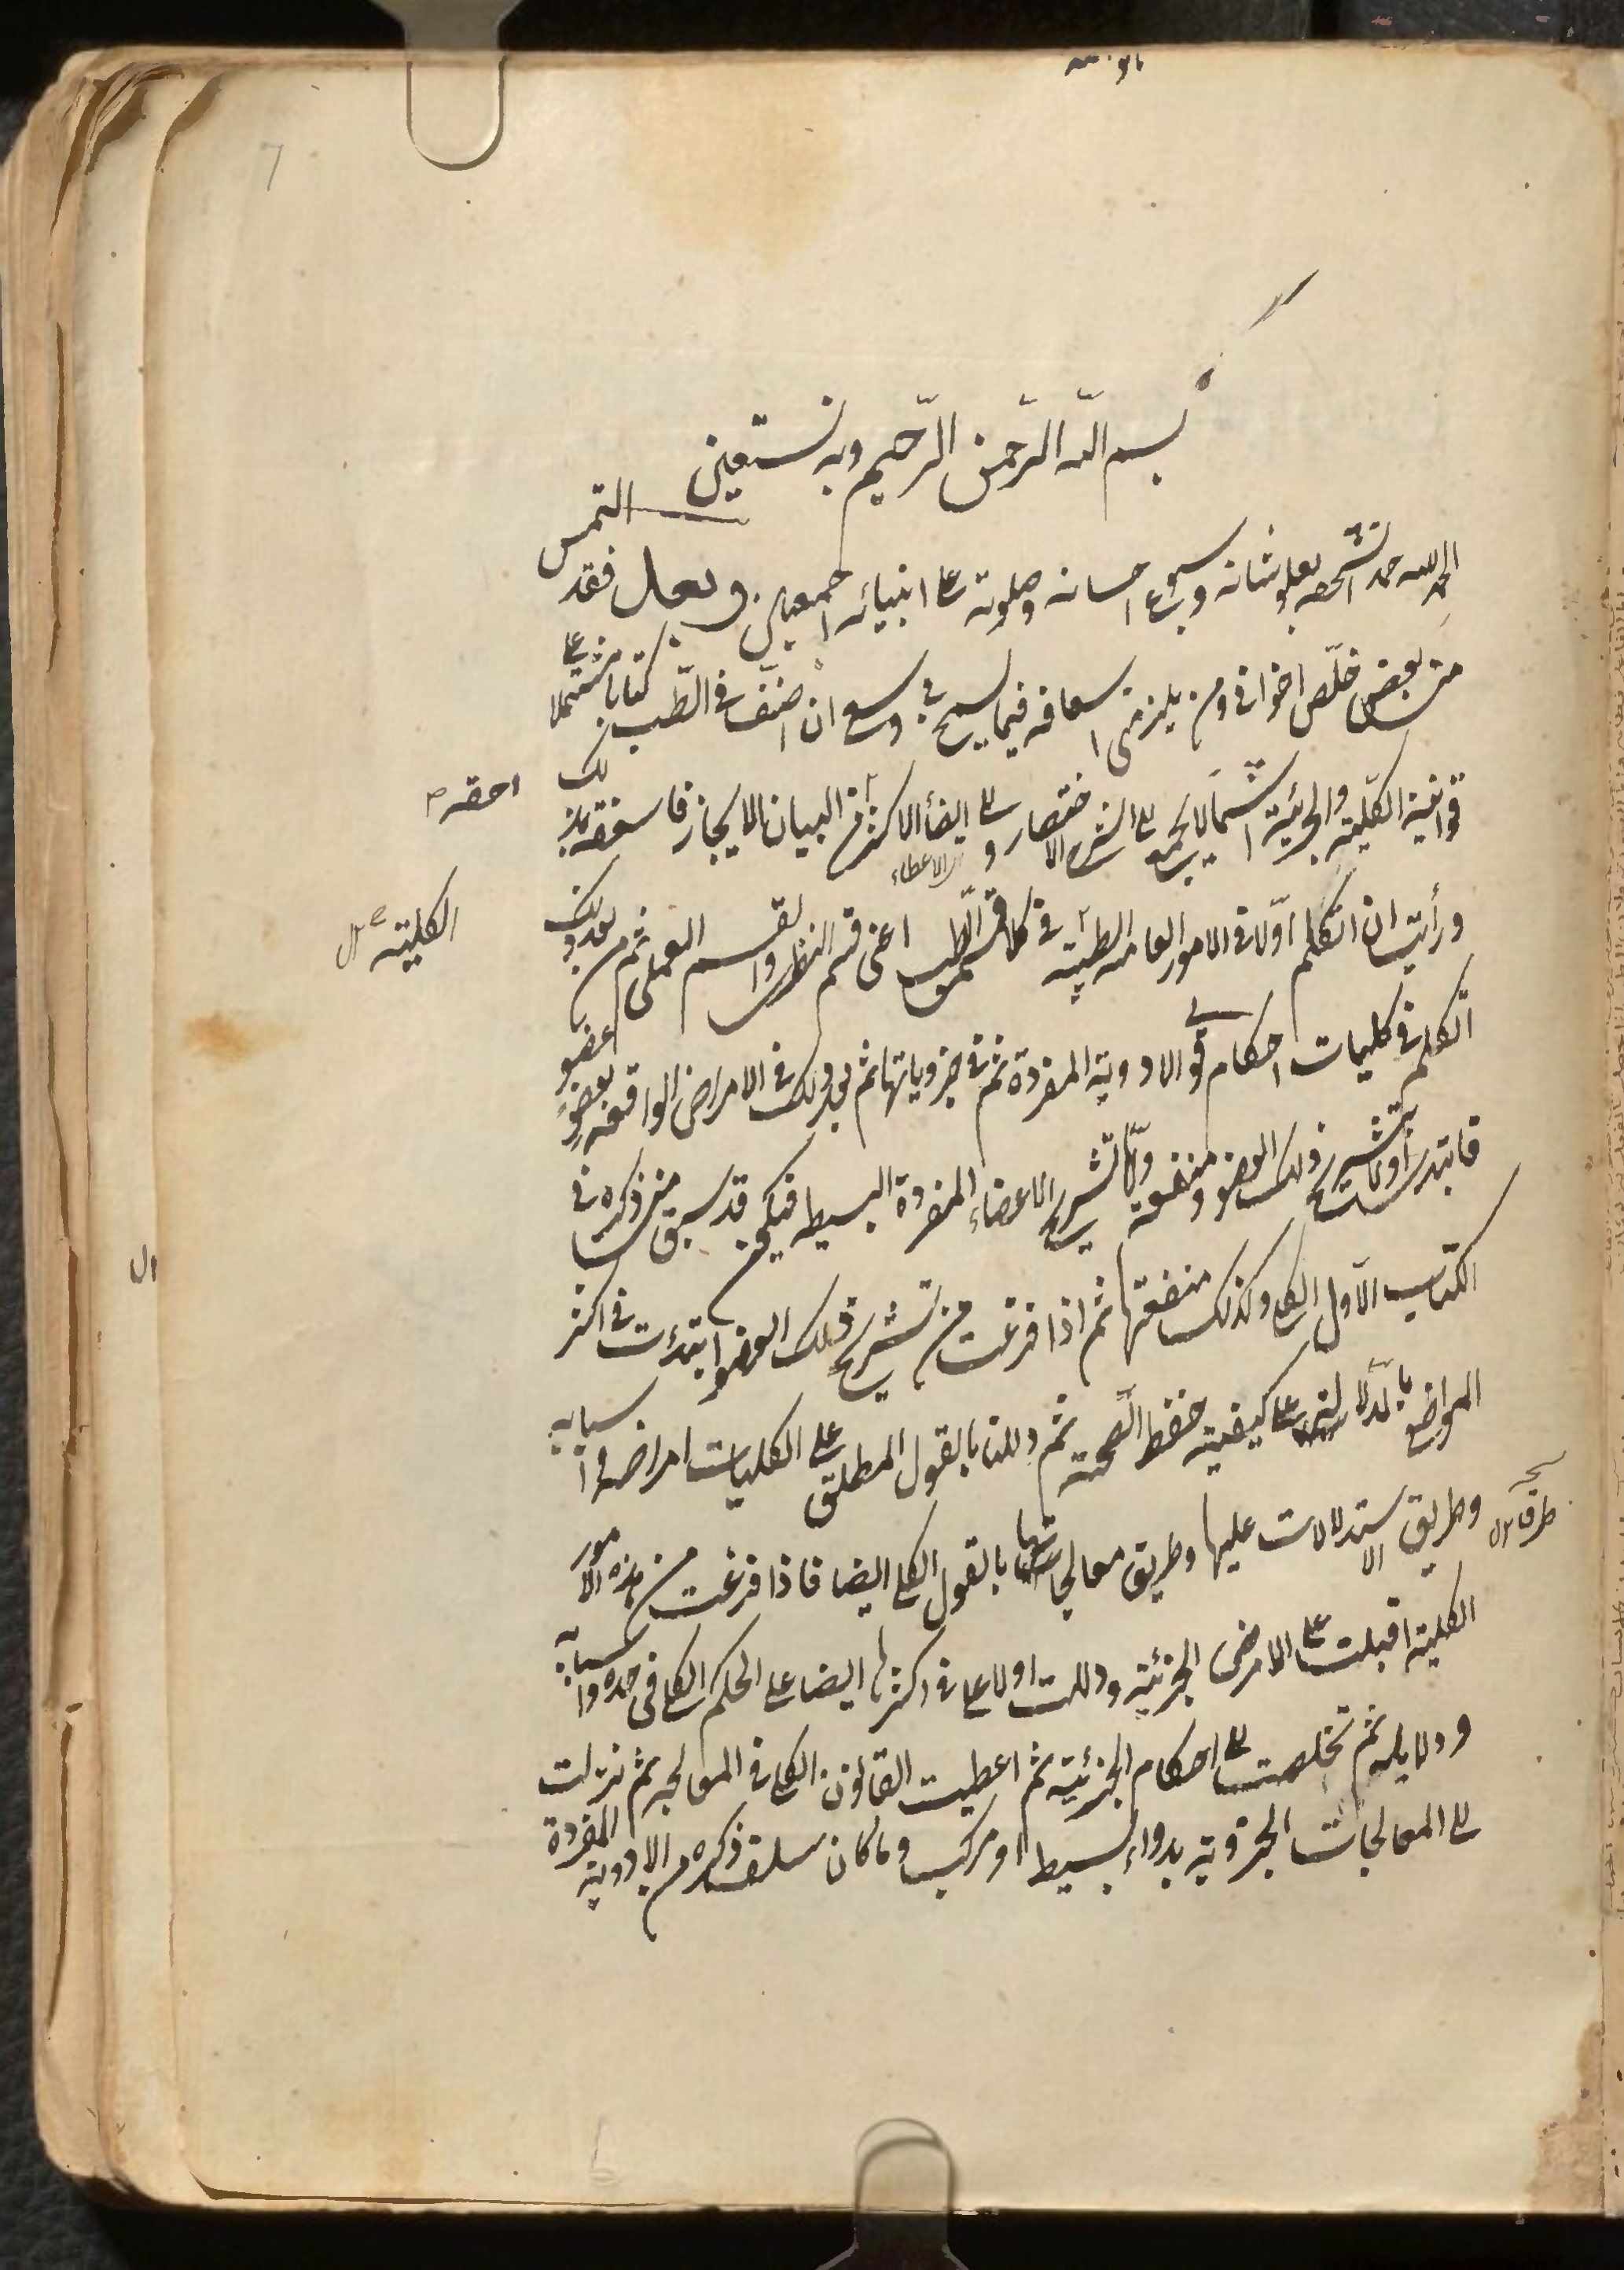 بسم الله الرحمن الرحيم وبه نستعين
الحمد لله حمدا يستحقه بعلو شانه وسبوغ احسانه وصلوته على انبيائه اجمعين وبعد فقد التمس
منى بعض خلّص اخوانى ومن يلزمنى اسعافه فيما يسمح به وسعى ان اصنّف فى الطّب كتابا مشتملا على
قوانينه الكلّية والجزئية اشتمالا يجمع الى الشرح الاختصار و الى ايفاء الاكثر من البيان الايجاز فاسعفته بذلك
الاعطاء
احقه
ورأيت ان اتكلم اوّلا فى الامور العامه الطبية فى كلا قسمى الطّب اعنى قسم النظرى والقسم العملى ثم من بعد ذلك
الكلية
اتكلم فى كليات احكام قوى الادوية المفردة ثم فى جزوياتها ثم بعد ذلك فى الامراض الواقعه بعضو عضو
فابتدى اولا بتشريح ذلك العضو ومنفعته وامّا تشريح الاعضاء المفردة البسيطه فيكون قد سبق منى ذكره فى
الكتاب الاول الكلى وكذلك منفعتها ثم اذا فرغت من تشريح ذلك العضو ابتدئت فى اكثر
المواضع بالدّلالة على كيفية حفظ الصّحة ثم دللت بالقول المطلق على الكليات امراضه واسبابه
وطريق الاستدلالات عليها وطريق معالجاتها بالقول الكلى ايضا فاذا فرغت من هذه الامور
الكلية اقبلت على الامرض الجزئية ودللت اولا على فى اكثرها ايضا على الحكم الكلى فى حده واسبابه
ودلايله ثم تخلصت الى احكام الجزئية ثم اعطيت القانون الكلى فى المعالجه ثم نزلت
الى المعالجات الجزوية بدواء بسيط او مركب وما كان سلف ذكره من الادوية المفردة